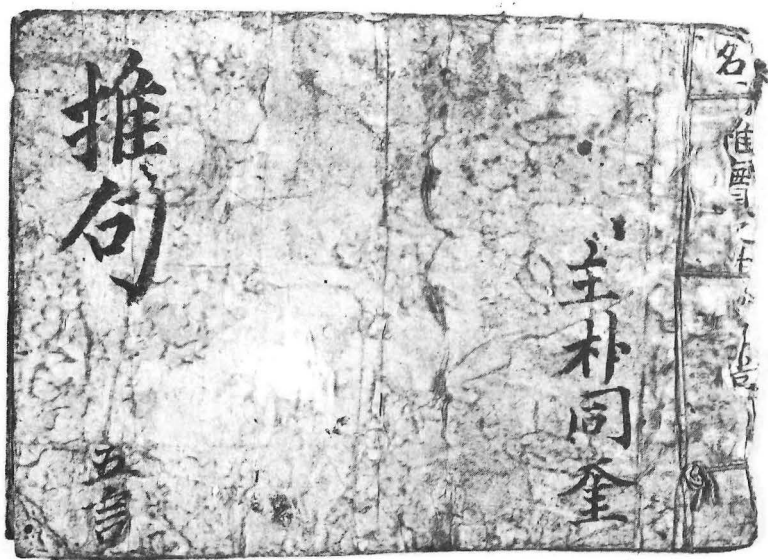 名
主朴同奎
推句
五言